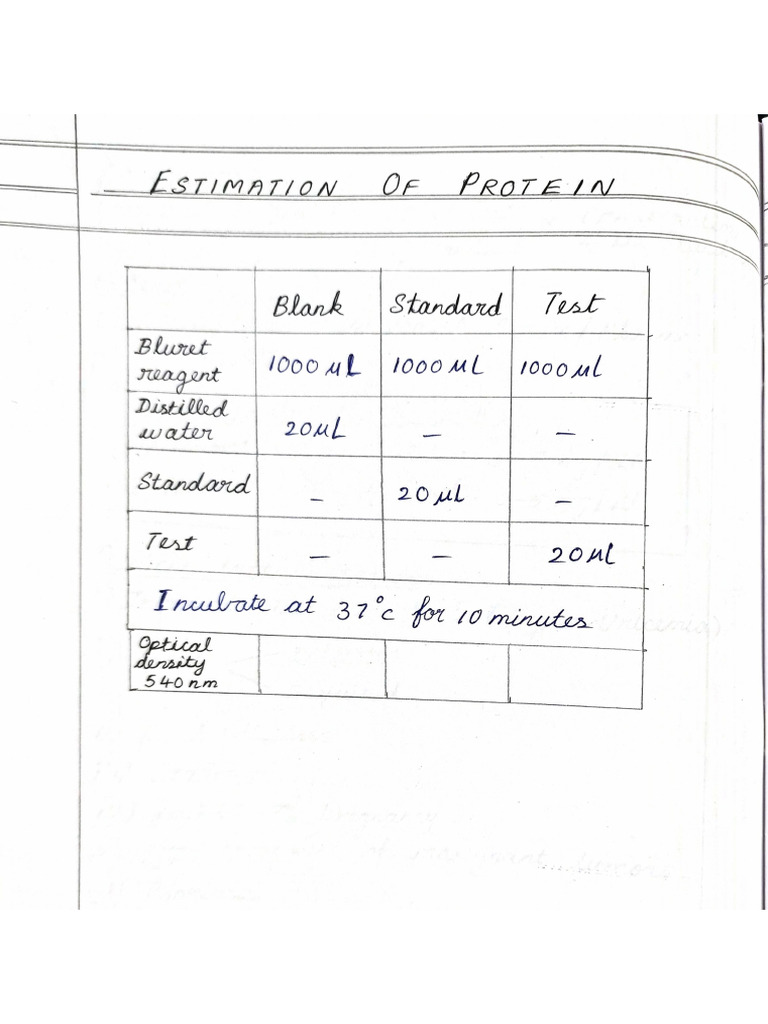 ESTIMATION OF PROTEIN
Blank Standard Test
Bluret
reagent 1000 µL 1000 µL 1000 µL
Distilled
water 20µL — —
Standard — 20 µL —
Test — — 20 µL
Incubate at 37°c for 10 minutes
Optical
density
540 nm